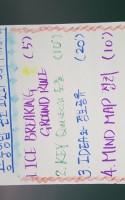 1. ICE BREAKING (5')
GROUND RULE
2. KEY Question 도출 (10')
3. IDEA와 정보공유 (20')
4. MIND MAP 정리 (10')